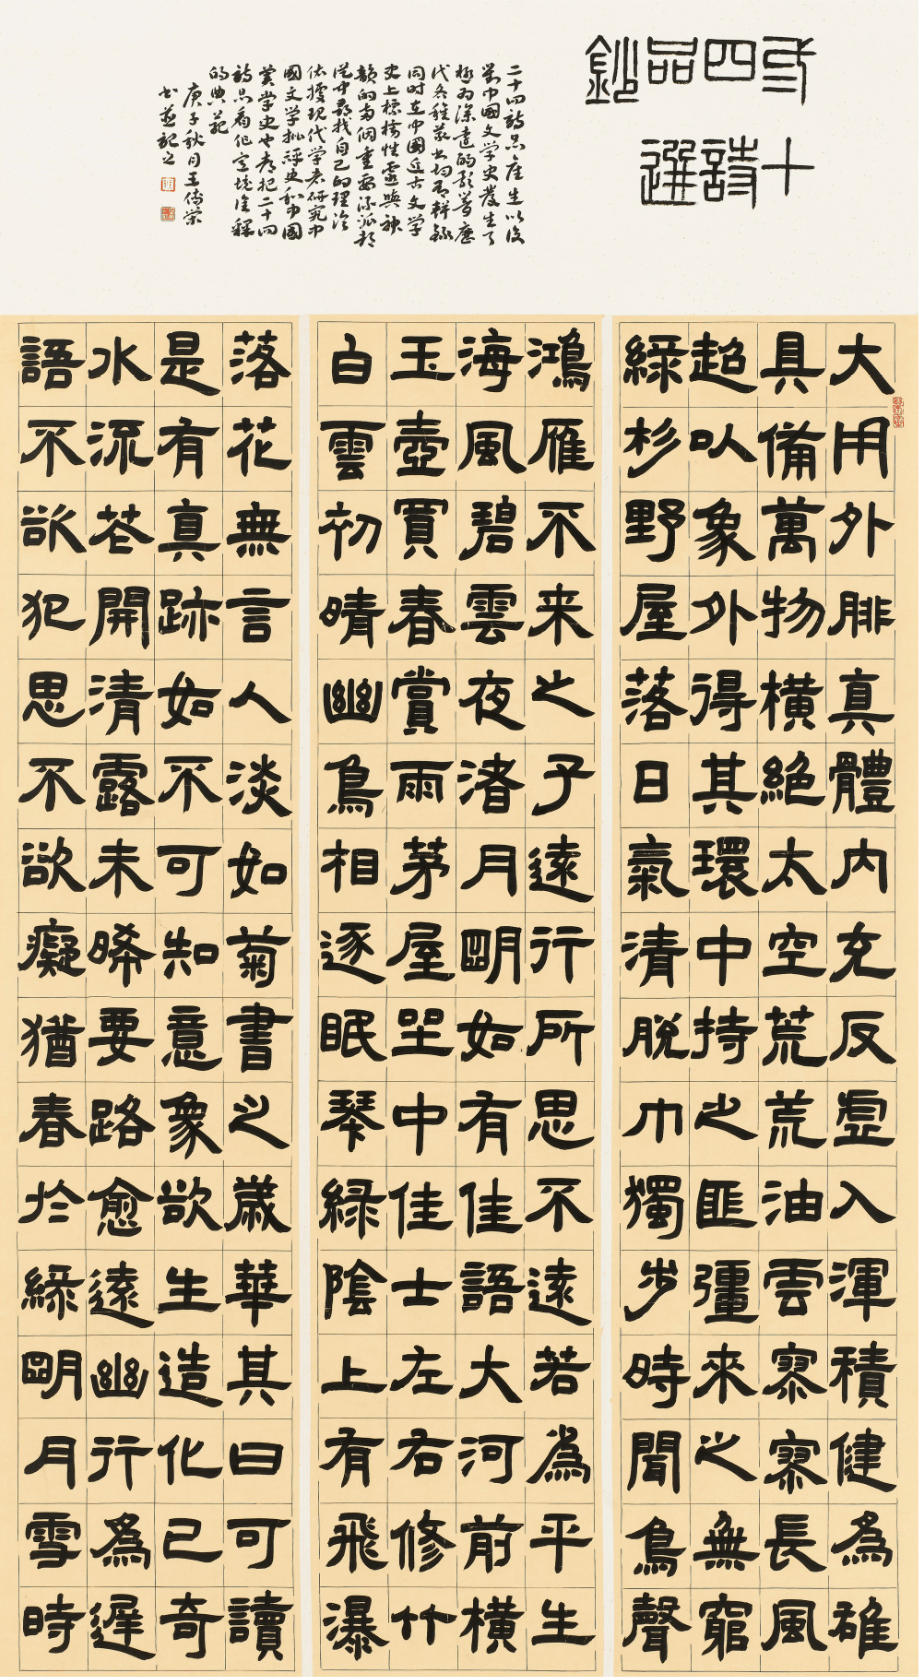 弍十
四詩
品選
鈔
二十四詩品产生以後
對中國文学史发生了
極为深遠的影响歷
代各種叢书均有輯錄
同时在中國近古文学
史上标榜性靈與神
韻的兩個重要流派都
從中尋找自己的理论
依據现代学者研究中
國文学批評史和中國
美学史也都把二十四
詩品看作
的典范
庚子秋月王
书並記之
大用外腓真體內充反虛入渾積健為雄
具備萬物橫絕太空荒荒油雲寥寥長風
超以象外得其環中持之匪彊來之無窮
綠杉野屋落日氣清脫巾獨步時聞鳥聲
鴻雁不来之子遠行所思不遠若為平生
海風碧雲夜渚月明如有佳語大河前橫
玉壺買春賞雨茅屋坐中佳士左右修竹
白雲初晴幽鳥相逐眠琴綠陰上有飛瀑
落花無言人淡如菊書之歲華其曰可讀
是有真跡如不可知意象欲生造化已奇
水流花開清露未晞要路愈遠幽行為遲
語不欲犯思不欲癡猶春於綠明月雪時